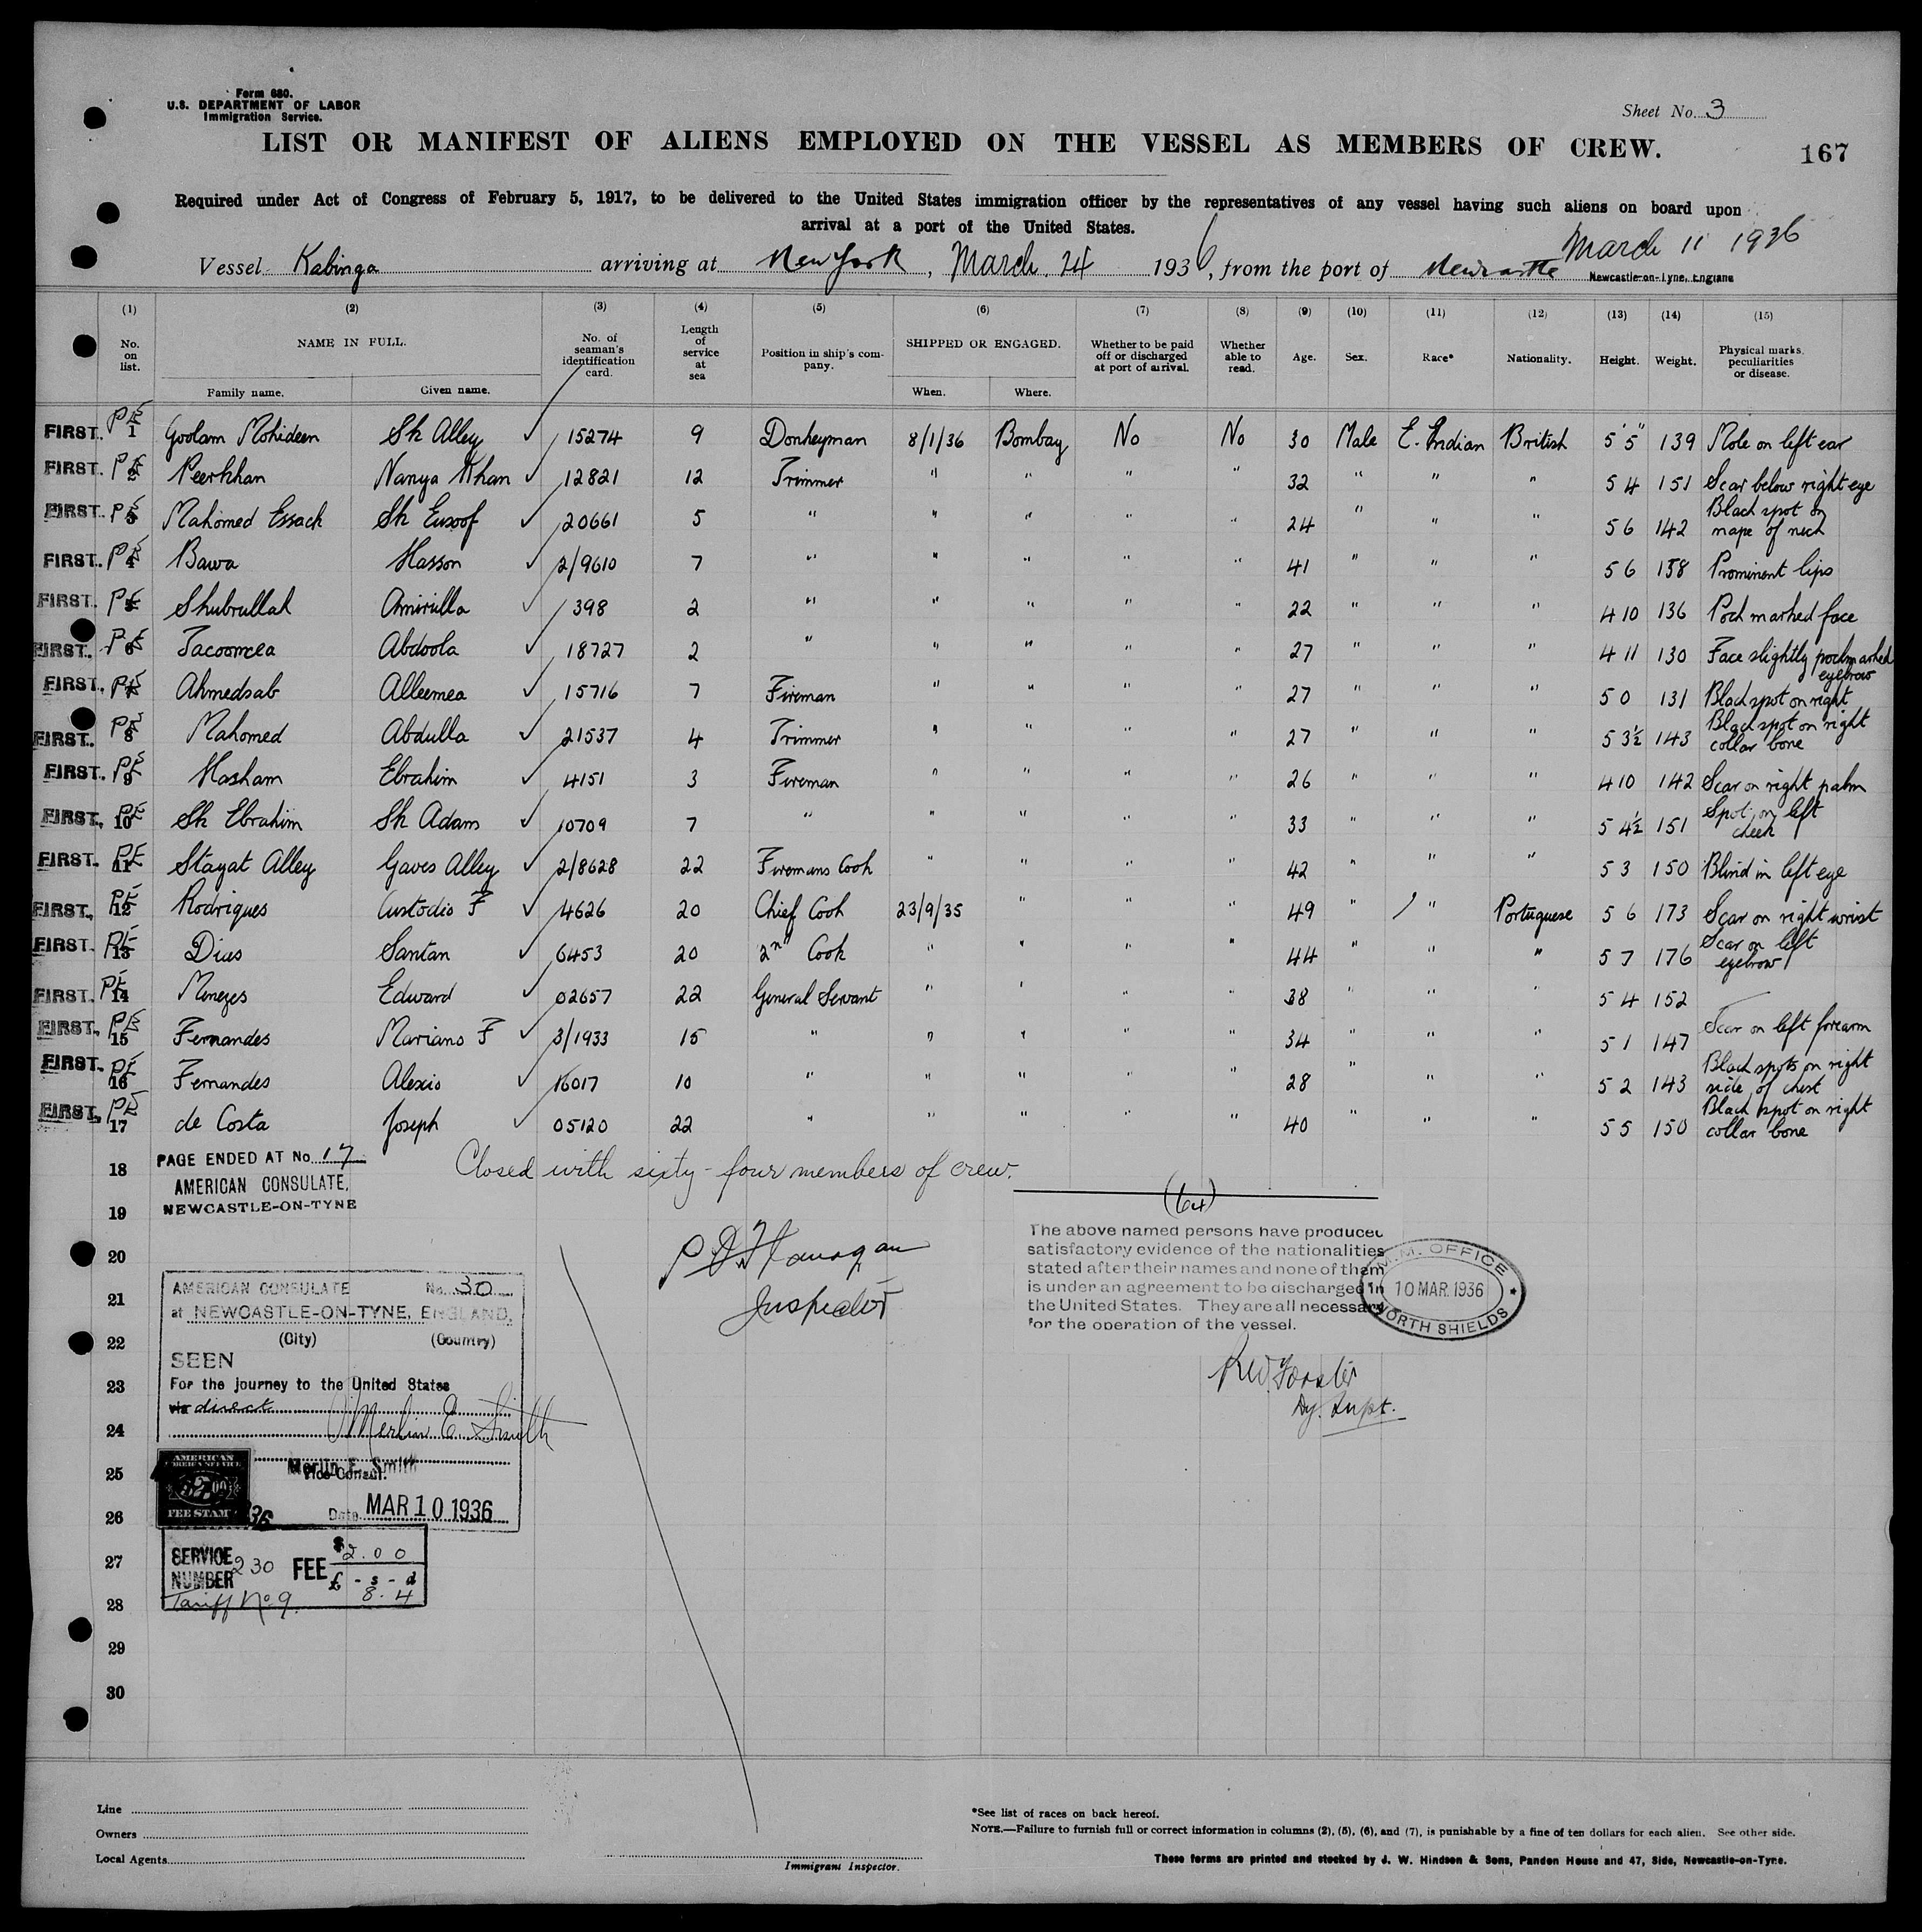 Form 680.
U.S. DEPARTMENT OF LABOR
Immigration Service.
Sheet No. 3
LIST OR MANIFEST OF ALIENS EMPLOYED ON THE VESSEL AS MEMBERS OF CREW.
167
Required under Act of Congress of February 5, 1917, to be delivered to the United States immigration officer by the representatives of any vessel having such aliens on board upon
arrival at a port of the United States.
March 11 1936
Vessel Kabinga arriving at New York, March 24 1936, from the port of Newcastle Newcastle-on-Tyne, England
(1) (2) (3) (4) (5) (6) (7) (8) (9) (10) (11) (12) (13) (14) (15)
No. on list. NAME IN FULL. Family name. Given name. No. of seaman's identification card. Length of service at sea Position in ship's company. SHIPPED OR ENGAGED. When. Where. Whether to be paid off or discharged at port of arrival. Whether able to read. Age. Sex. Race* Nationality. Height. Weight. Physical marks, peculiarities or disease.
FIRST. 1 Goolam Mohideen Sk Alley ✓ 15274 9 Donkeyman 8/1/36 Bombay No No 30 Male E. Indian British 5'5" 139 Mole on left ear
FIRST. 2 Peerkhan Nanya Khan ✓ 12821 12 Trimmer " " " " 32 " " " 5 4 151 Scar below right eye
FIRST. 3 Mahomed Essack Sk Eusoof ✓ 20661 5 " " " " " 24 " " " 5 6 142 Black spot on nape of neck
FIRST. 4 Bawa Hasson ✓ 2/9610 7 " " " " " 41 " " " 5 6 138 Prominent lips
FIRST. 5 Shubrullah Amirulla ✓ 398 2 " " " " " 22 " " " 4 10 136 Pock marked face
FIRST. 6 Jacoomea Abdoola ✓ 18727 2 " " " " " 27 " " " 4 11 130 Face slightly pockmarked
FIRST. 7 Ahmedsab Alleemea ✓ 15716 7 Fireman " " " " 27 " " " 5 0 131 Black spot on right eyebrow
FIRST. 8 Mahomed Abdulla ✓ 21537 4 Trimmer " " " " 27 " " " 5 3½ 143 Black spot on right collar bone
FIRST. 9 Hasham Ebrahim ✓ 4151 3 Fireman " " " " 26 " " " 4 10 142 Scar on right palm
FIRST. 10 Sk Ebrahim Sk Adams ✓ 10709 7 " " " " " 33 " " " 5 4½ 151 Spot on left cheek
FIRST. 11 Stayat Alley Gaves Alley ✓ 2/8628 22 Firemans Cook " " " " 42 " " " 5 3 150 Blind in left eye
FIRST. 12 Rodrigues Custodio F ✓ 4626 20 Chief Cook 23/9/35 " " " 49 " " Portuguese 5 6 173 Scar on right wrist
FIRST. 13 Dias Santan ✓ 6453 20 2nd Cook " " " " 44 " " " 5 7 176 Scar on left eyebrow
FIRST. 14 Menezes Edward ✓ 02657 22 General Servant " " " " 38 " " " 5 4 152
FIRST. 15 Fernandes Mariano F ✓ 3/1933 15 " " " " " 34 " " " 5 1 147 Scar on left forearm
FIRST. 16 Fernandes Alexio ✓ 16017 10 " " " " " 28 " " " 5 2 143 Black spots on right side of chest
FIRST. 17 de Costa Joseph ✓ 05120 22 " " " " " 40 " " " 5 5 150 Black spot on right collar bone
18 PAGE ENDED AT No. 17
AMERICAN CONSULATE,
NEWCASTLE-ON-TYNE
Closed with sixty-four members of crew.
(64)
19
20
21
22
23
24
25
26
27
28
29
30
Inspector
The above named persons have produced
satisfactory evidence of the nationalities
stated after their names and none of them
is under an agreement to be discharged in
the United States. They are all necessary
for the operation of the vessel.
M.M. OFFICE
10 MAR. 1936
NORTH SHIELDS
Dy. Supt.
AMERICAN CONSULATE No. 30
at NEWCASTLE-ON-TYNE, ENGLAND.
(City) (Country)
SEEN
For the journey to the United States
via direct
Merlin E. Smith
Merlin E. Smith
Vice Consul.
Date MAR 10 1936
AMERICAN
FOREIGN SERVICE
$2.00
FEE STAMP
SERVICE NUMBER 230 FEE $2.00
£ - s - d
8. 4
Tariff No 9.
Line
Owners
Local Agents
Immigrant Inspector.
*See list of races on back hereof.
NOTE.—Failure to furnish full or correct information in columns (2), (5), (6), and (7), is punishable by a fine of ten dollars for each alien. See other side.
These forms are printed and stocked by J. W. Hindson & Sons, Pandon House and 47, Side, Newcastle-on-Tyne.